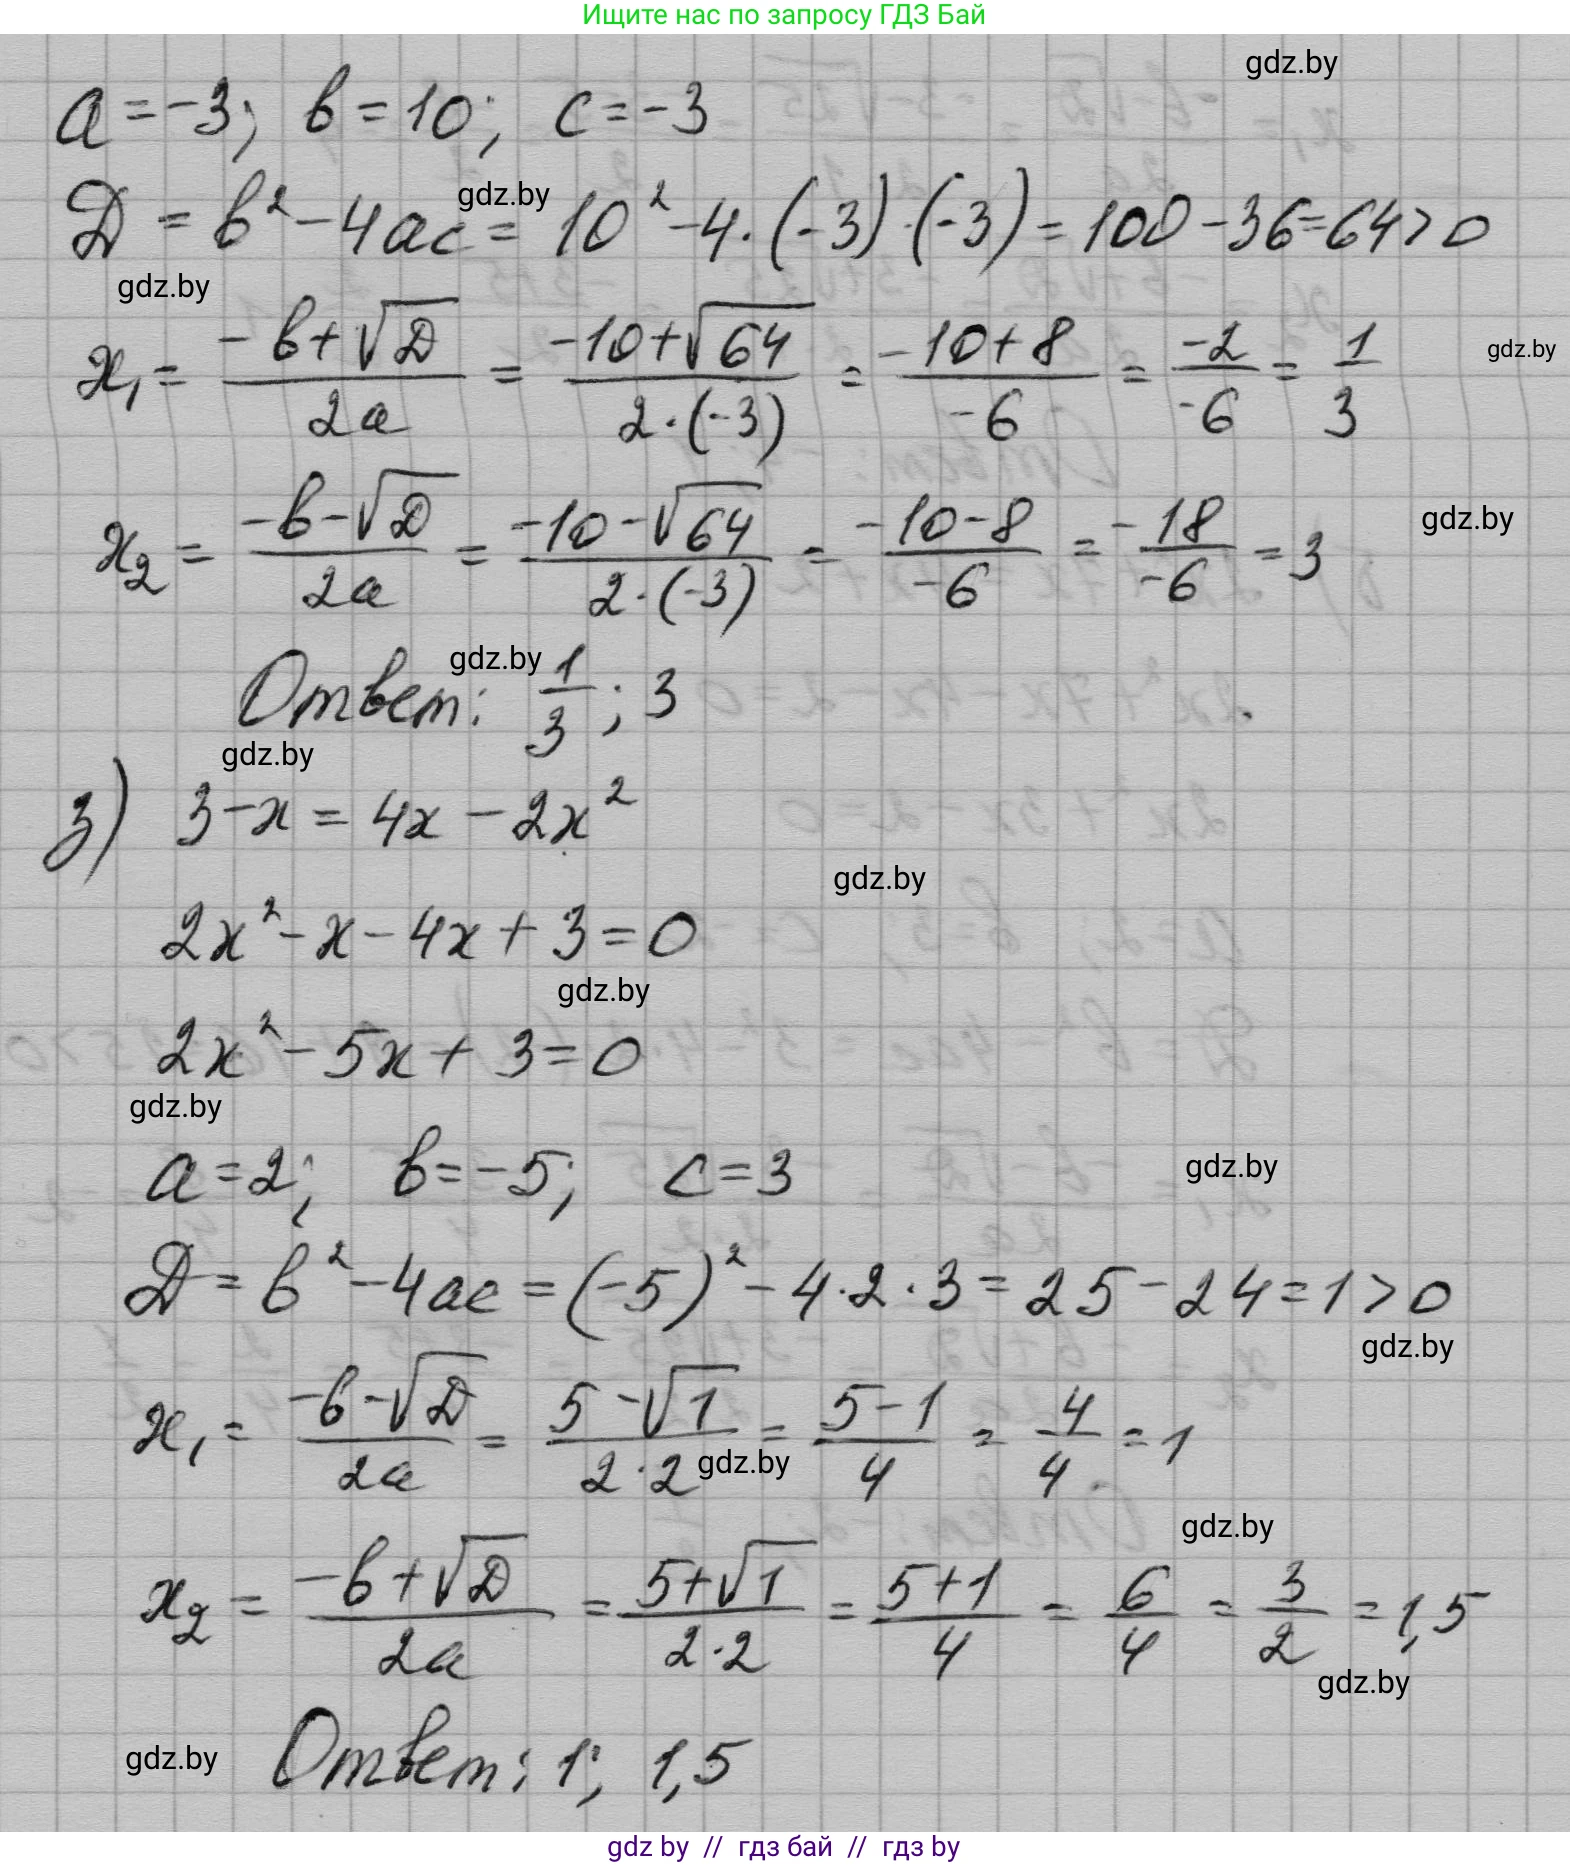 Ищите нас по запросу ГДЗ Бай
gdz.by
a = -3; b = 10; c = -3
gdz.by
D = b² - 4ac = 10² - 4 · (-3) · (-3) = 100 - 36 = 64 > 0
gdz.by
x₁ = (-b + √D)/(2a) = (-10 + √64)/(2 · (-3)) = (-10 + 8)/(-6) = (-2)/(-6) = 1/3
gdz.by
x₂ = (-b - √D)/(2a) = (-10 - √64)/(2 · (-3)) = (-10 - 8)/(-6) = (-18)/(-6) = 3
gdz.by
gdz.by
Ответ: 1/3; 3
gdz.by
з) 3 - x = 4x - 2x²
gdz.by
2x² - x - 4x + 3 = 0
gdz.by
2x² - 5x + 3 = 0
gdz.by
a = 2; b = -5; c = 3
gdz.by
D = b² - 4ac = (-5)² - 4 · 2 · 3 = 25 - 24 = 1 > 0
gdz.by
x₁ = (-b - √D)/(2a) = (5 - √1)/(2 · 2) = (5 - 1)/4 = 4/4 = 1
gdz.by
gdz.by
x₂ = (-b + √D)/(2a) = (5 + √1)/(2 · 2) = (5 + 1)/4 = 6/4 = 3/2 = 1,5
gdz.by
gdz.by
Ответ: 1; 1,5
gdz by // гдз бай // гдз by